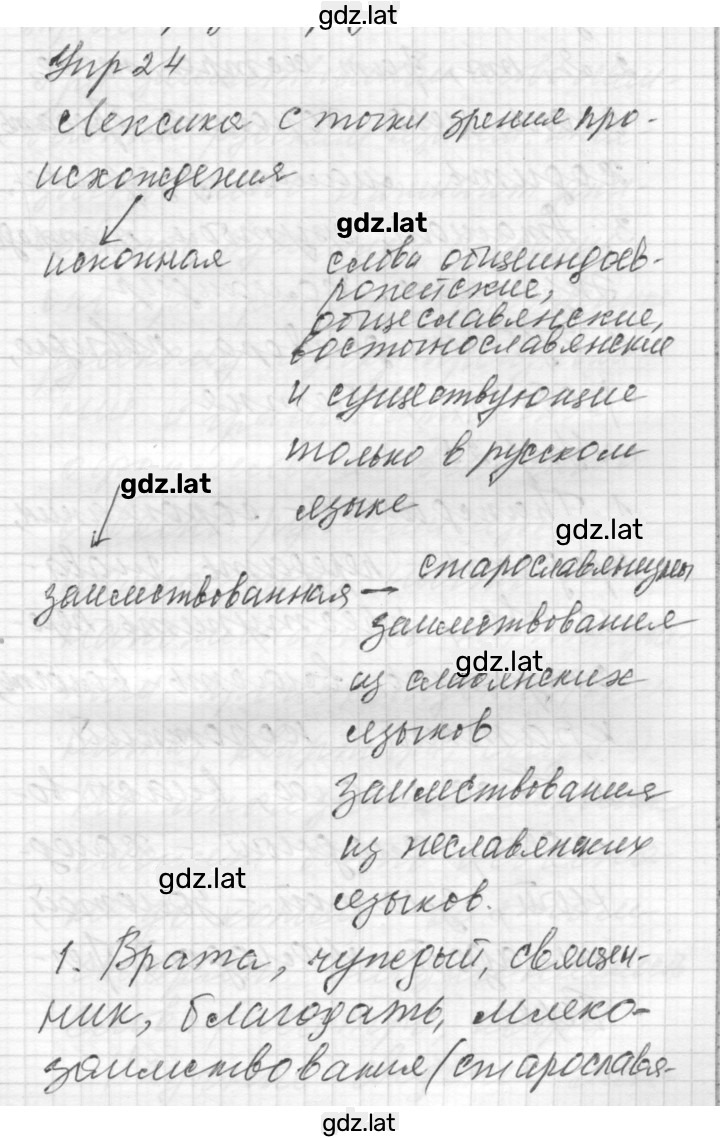 gdz.lat
Упр 24
Лексика с точки зрения про-
исхождения
gdz.lat
исконная
слова общеиндоев-
ропейские,
общеславянские,
восточнославянские
и существующие
только в русском
gdz.lat
языке
gdz.lat
заимствованная — старославянизмы
заимствования
gdz.lat
из славянских
языков
заимствования
из неславянских
gdz.lat
языков.
1. Врата, чуждый, священ-
ник, благодать, млеко-
заимствования (старославя-
gdz.lat